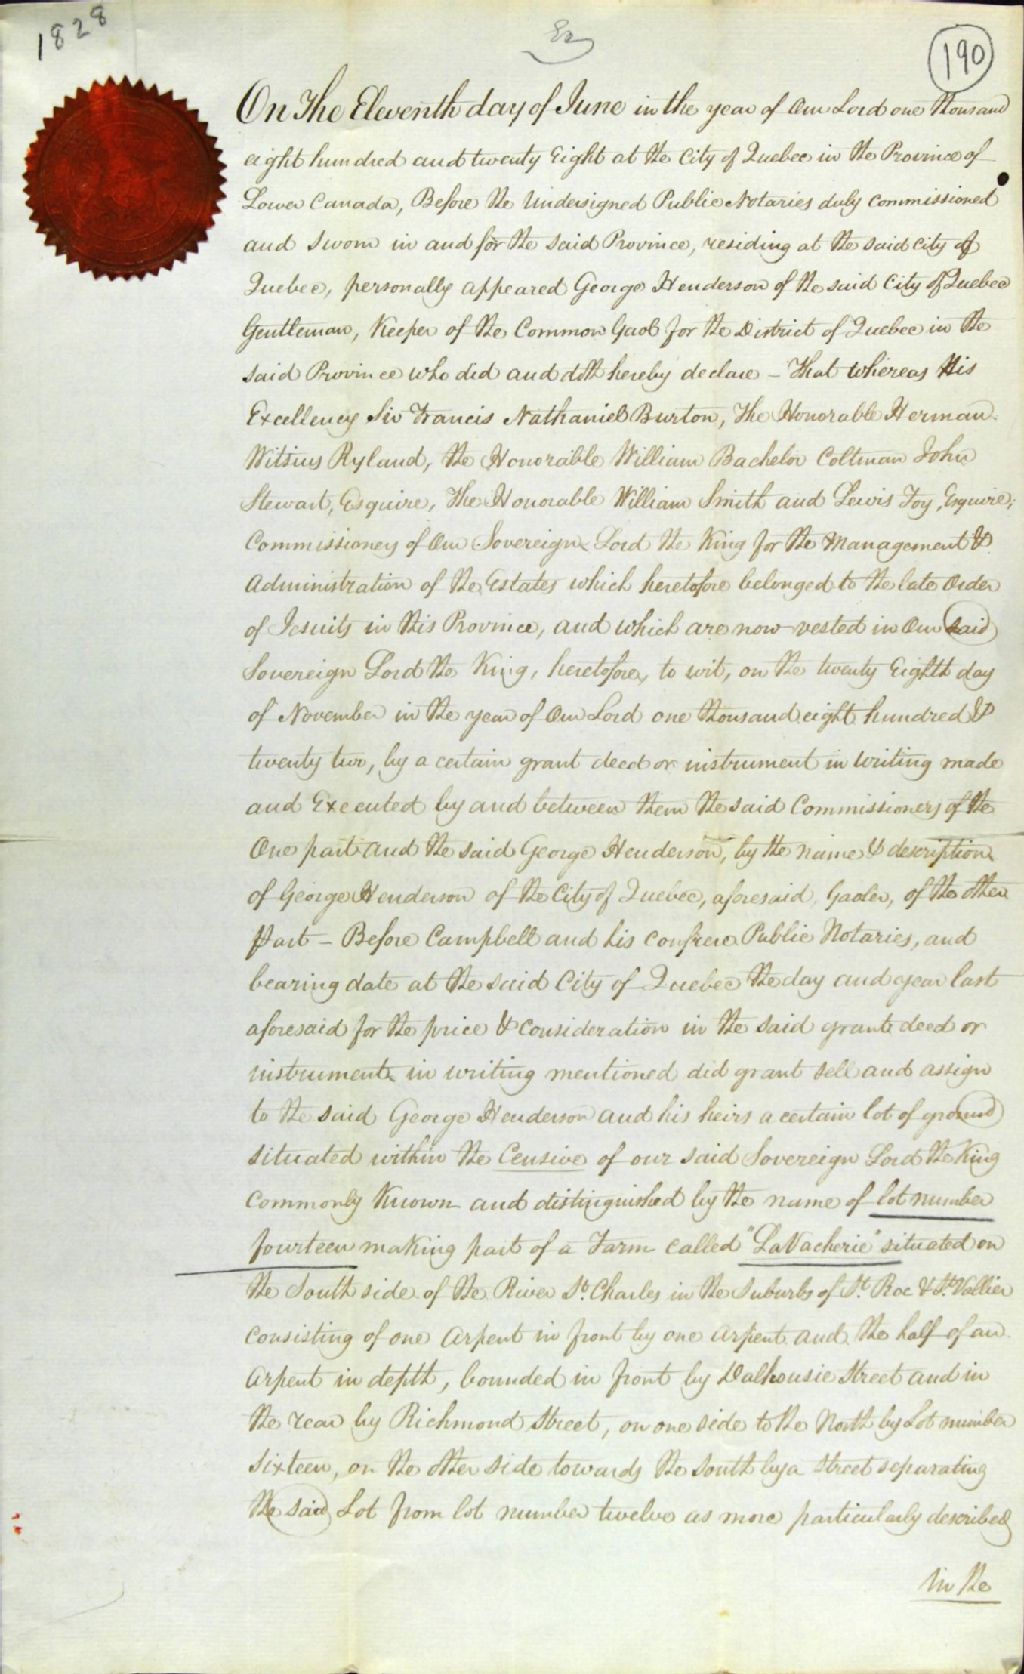 1828
190
On The Eleventh day of June in the year of Our Lord one thousand
eight hundred and twenty Eight at the City of Quebec in the Province of
Lower Canada, Before the Undersigned Public Notaries duly commissioned
and sworn in and for the said Province, residing at the said City of
Quebec, personally appeared George Henderson of the said City of Quebec
Gentleman, Keeper of the Common Gaol for the District of Quebec in the
said Province who did and doth hereby declare – That whereas His
Excellency Sir Francis Nathaniel Burton, The Honorable Herman
Witsius Ryland, the Honorable William Bachelor Coltman John
Stewart, Esquire, The Honorable William Smith and Lewis Foy, Esquire,
Commissioners of Our Sovereign Lord the King for the Management &
Administration of the Estates which heretofore belonged to the late Order
of Jesuits in this Province, and which are now vested in Our said
Sovereign Lord the King, heretofore, to wit, on the twenty Eighth day
of November in the year of Our Lord one thousand eight hundred &
twenty two, by a certain grant deed or instrument in writing made
and Executed by and between them the said Commissioners of the
One part and the said George Henderson, by the name & description
of George Henderson of the City of Quebec, aforesaid, Gaoler, of the other
Part – Before Campbell and his confrere Public Notaries, and
bearing date at the said City of Quebec the day and year last
aforesaid for the price & consideration in the said grant deed or
instrument in writing mentioned did grant sell and assign
to the said George Henderson and his heirs a certain lot of ground
situated within the Censive of our said Sovereign Lord the King
commonly Known and distinguished by the name of lot number
fourteen making part of a Farm called "La Vacherie" situated on
the South side of the River St. Charles in the Suburbs of St. Roc & St. Vallier
consisting of one Arpent in front by one Arpent and the half of an
Arpent in depth, bounded in front by Dalhousie Street and in
the rear by Richmond Street, on one side to the North by Lot number
sixteen, on the other side towards the south by a street separating
the said Lot from lot number twelve as more particularly described
in the